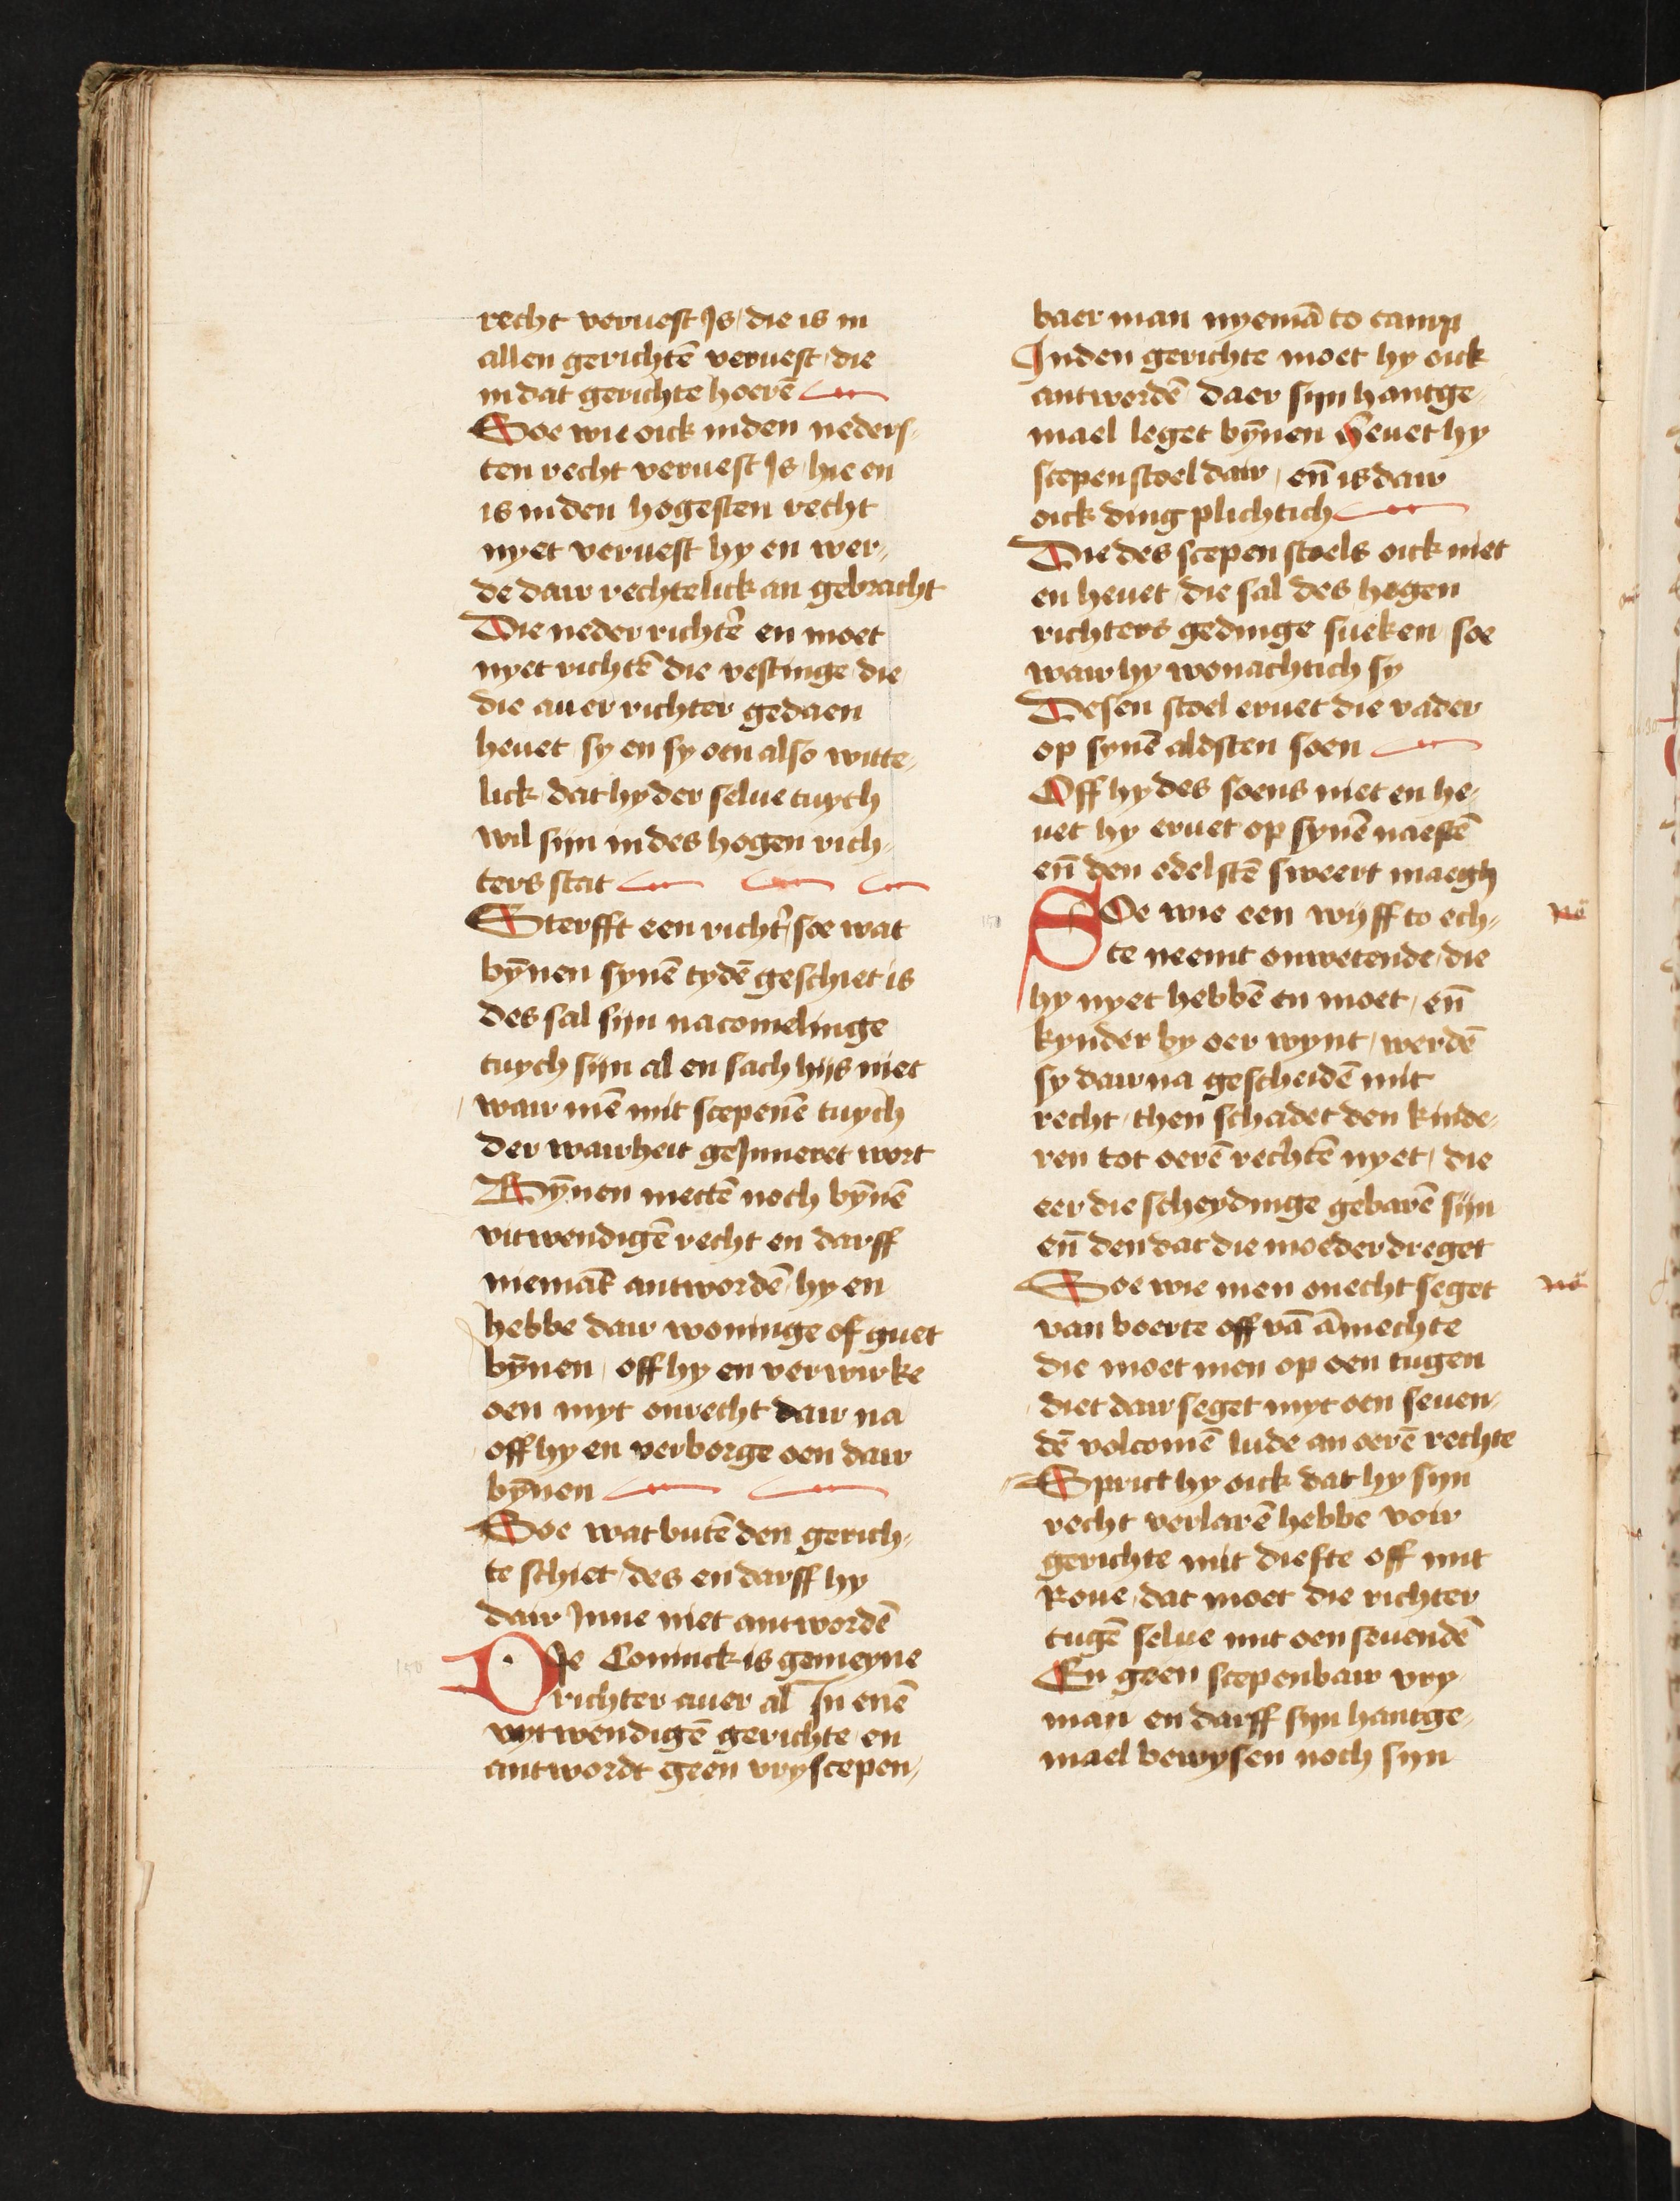 recht veruest Is / die is in
allen gerichtē veruest / die
in dat gerichte hoerē
Soe wie oick inden neders⸗
ten recht veruest Is / hie en
is inden hogesten recht
nyet veruest hy en wer⸗
de dair rechtelick an gebracht
Die neder richter̄ en moet
nyet richtē die vestinge / die
die auer richter gedaen
heuet / sy en sy oen also witte⸗
lick / dat hy der selue tuych
wil sijn in des hogen rich⸗
ters stat
Sterfft een richt̄ / soe wat
bȳnen synē tydē geschiet is
des sal sijn nacomelinge
tuych sijn al en sach hijs niet
wair mē mit scepenē tuych
der wairheit geInneret wort
Bȳnen mettē noch bȳnē
vitwendigē recht en darff
niemāt antwordē / hy en
hebbe dair woninge of guet
bȳnen / off hy en verwirke
oen myt onrecht dair na
off hy en verborge oen dair
bȳnen
Soe wat butē den gerich⸗
te schiet / des en darff hy
dair Inne niet antwordē
150
Die Coninck is gemeyne
richter auer al In enē
vytwendigē gerichte / en
antwordt geen vry scepen⸗
baer man nyemā to camp
Inden gerichte moet hy oick
antwordē daer sijn hantge⸗
mael leget bȳnen Heuet hy
scepen stoel dair / en̄ is dair
oick ding plichtich
Die des scepen stoels oick niet
en heuet / die sal des hogen
richters gedinge sueken / soe
wair hy wonachtich sy
Desen stoel eruet die vader
op synē aldsten soen
Off hy des soens niet en he⸗
uet hy eruet op synē naestē
en̄ den edelstē sweert maegh
151
SOe wie een wijff to ech⸗
no̅
te neemt onwetende / die
hy nyet hebbē en moet / en̄
kynder by oer wynt / werdē
sy dair na gescheidē mit
recht / then schadet den kinde⸗
ren tot oerē rechtē nyet / die
eer die scheydinge gebarē sijn
en̄ den dat die moeder dreget
Soe wie men onecht seget
no̅
van boerte off vā āmechte
die moet men op oen tugen
diet dair seget myt oen seuen⸗
dē volcomē lude an oerē rechte
Sprict hy oick dat hy sijn
recht verlarē hebbe voir
gerichte mit diefte off mit
Roue / dat moet die richter
tugē selue mit oen seuendē
En geen scepenbair vry
man en darff sijn hantge⸗
mael bewysen noch sijn